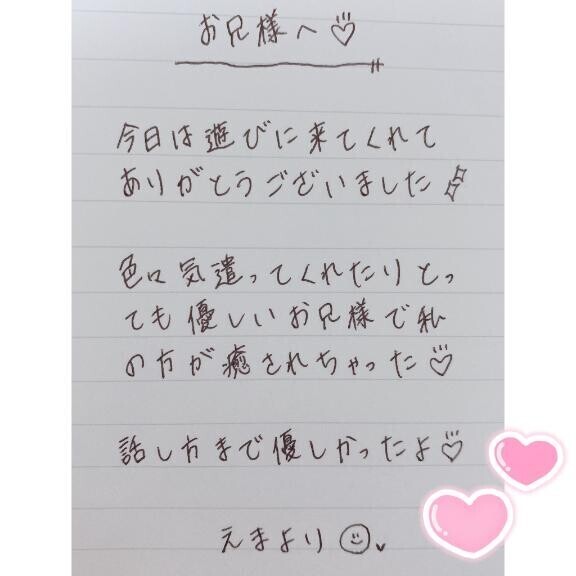 お兄様へ♡
今日は遊びに来てくれて
ありがとうございました
色々気遣ってくれたりとっ
ても優しいお兄様で私
の方が癒されちゃった♡
話し方まで優しかったよ♡
えまより